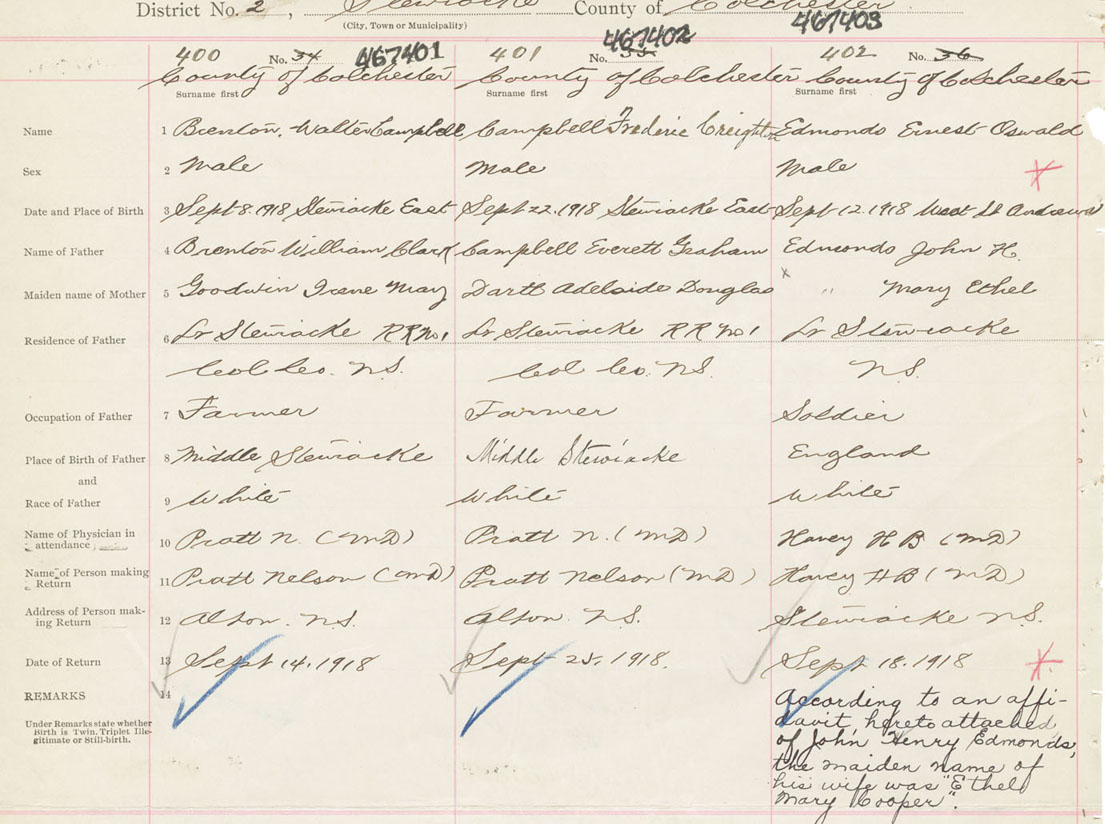 District No. 2, Stewiacke County of Colchester
(City, Town or Municipality)
400 No. 34 467401 401 No. 35 467402 402 No. 36 467403
County of Colchester County of Colchester County of Colchester
Surname first Surname first Surname first
Name 1 Brenton, Walter Campbell Campbell Frederic Creighton Edmonds Ernest Oswald
Sex 2 Male Male Male
Date and Place of Birth 3 Sept 8. 1918 Stewiacke East Sept 22. 1918 Stewiacke East Sept 12. 1918 West St Andrews
Name of Father 4 Brenton William Clark Campbell Everett Graham Edmonds John H.
Maiden name of Mother 5 Goodwin Irene May Dartt Adelaide Douglas x " Mary Ethel
Residence of Father 6 Lr Stewiacke RR No 1 Lr Stewiacke RR No 1 Lr Stewiacke
Col Co. N.S. Col Co. N.S. N.S.
Occupation of Father 7 Farmer Farmer Soldier
Place of Birth of Father 8 Middle Stewiacke Middle Stewiacke England
and
Race of Father 9 White White White
Name of Physician in
attendance 10 Pratt N. (MD) Pratt N. (MD) Havey H B (MD)
Name of Person making
Return 11 Pratt Nelson (MD) Pratt Nelson (MD) Havey H B (MD)
Address of Person mak-
ing Return 12 Alton. N.S. Alton. N.S. Stewiacke N.S.
Date of Return 13 Sept 14. 1918 Sept 25. 1918. Sept 18. 1918
REMARKS 14
Under Remarks state whether
Birth is Twin, Triplet Ille-
gitimate or Still-birth.
According to an affi-
davit hereto attached
of John Henry Edmonds,
the maiden name of
his wife was "Ethel
Mary Cooper".